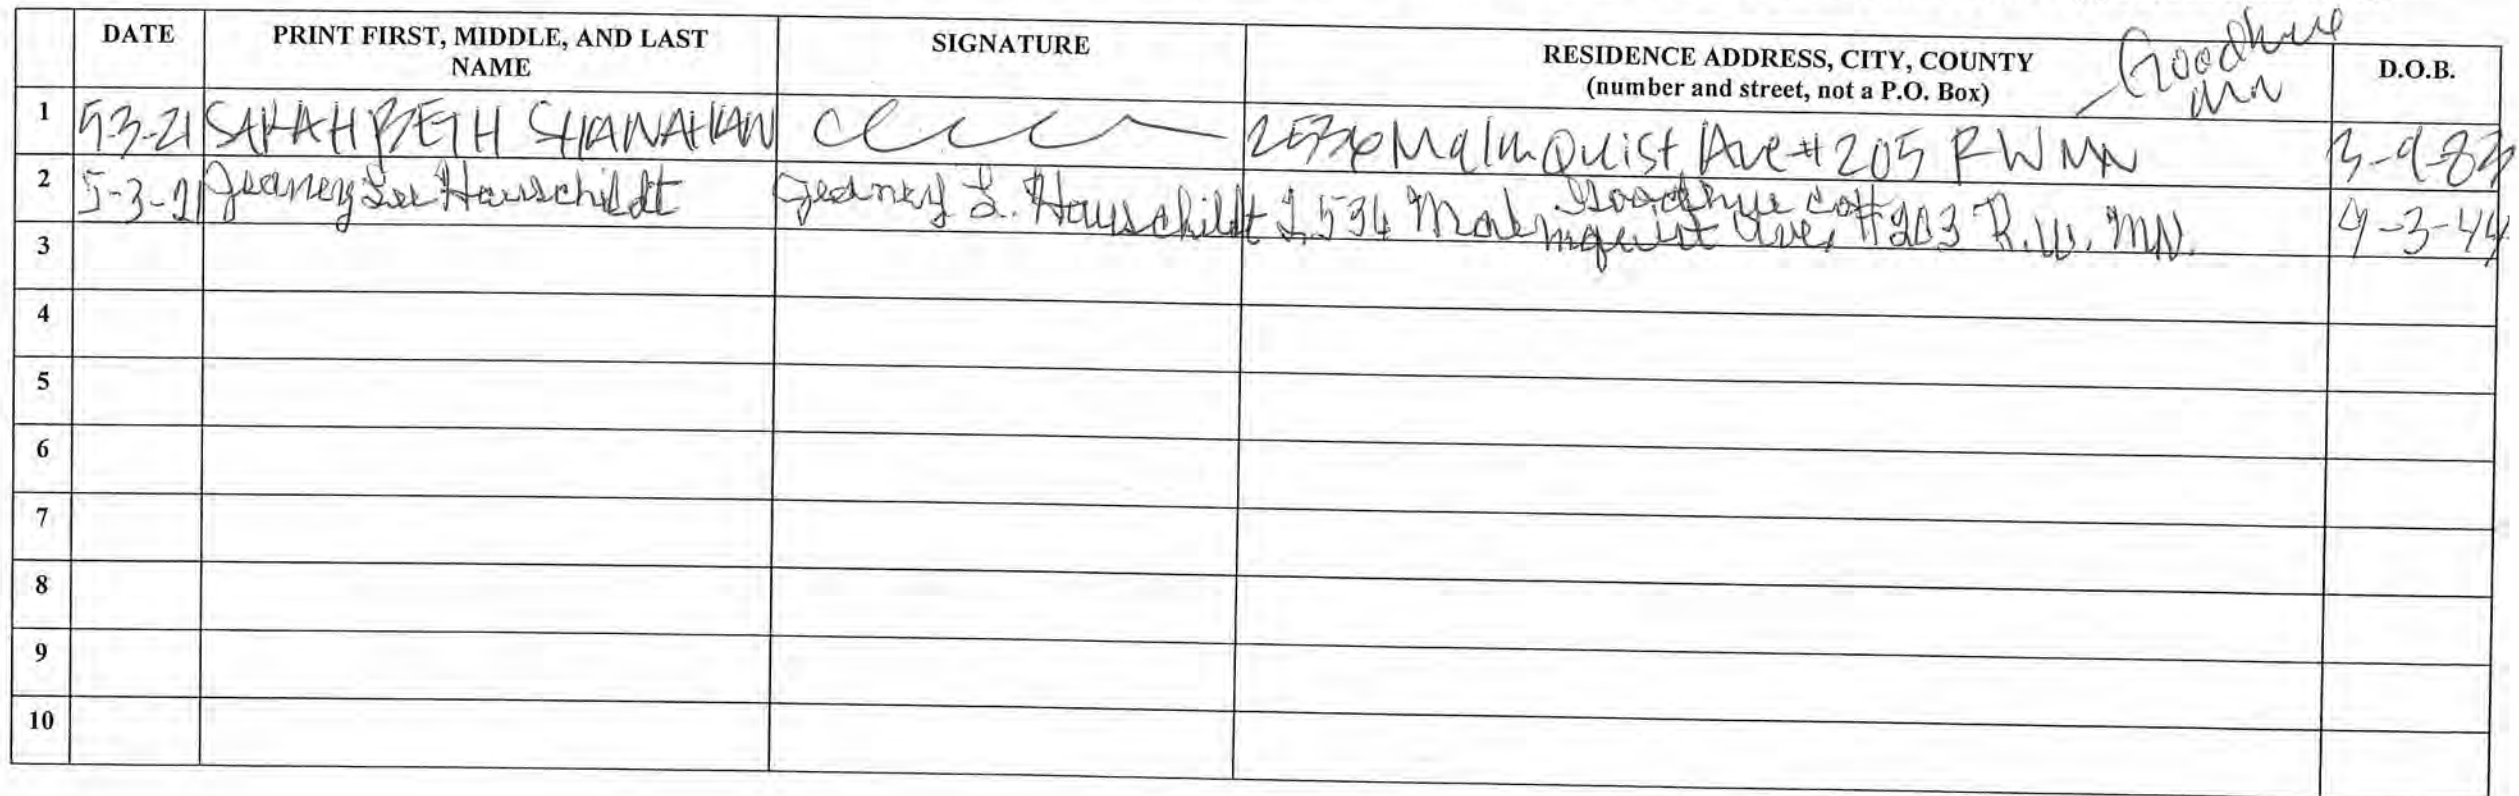 DATE PRINT FIRST, MIDDLE, AND LAST NAME SIGNATURE RESIDENCE ADDRESS, CITY, COUNTY (number and street, not a P.O. Box) D.O.B.
Goodhue
MN
1 5-3-21 SARAH BETH SHANAHAN 2536 MalmQuist Ave #205 RW MN 3-9-83
2 5-3-21 Jeaney Lee Hauschildt Jeaney L. Hauschildt 2534 Malmquist Ave, #203 R.W. MN. 9-3-44
Goodhue Co
3
4
5
6
7
8
9
10